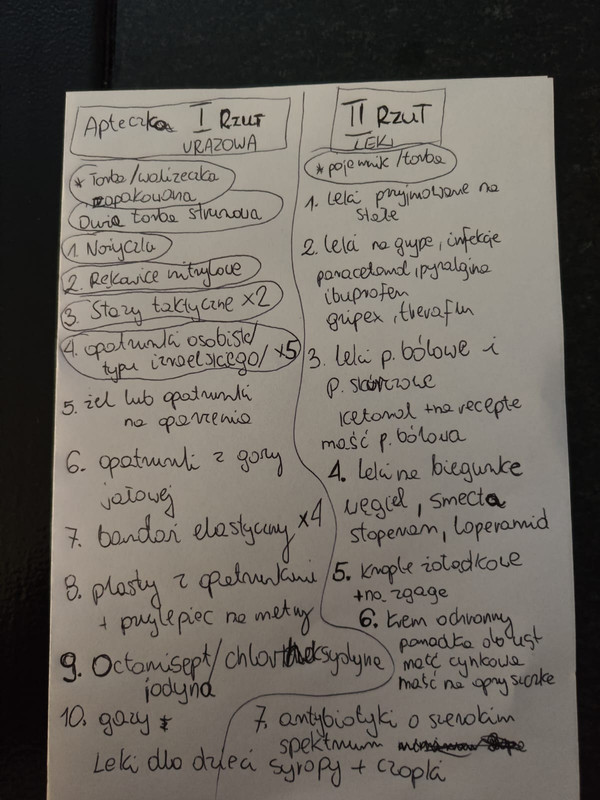 Apteczka I Rzut
URAZOWA
* Torba/walizeczka
zapakowana
Duża torba strunowa
1. Nożyczki
2. Rękawice nitrylowe
3. Stazy taktyczne x2
4. opatrunki osobist/
typu izraelskiego/ x5
5. żel lub opatrunki
na oparzenia
6. opatrunki z gazy
jałowej
7. bandaż elastyczny x4
8. plastry z opatrunkami
+ przylepiec na metry
9. Octanisept/chlorheksydyna
jodyna
10. gazy
II Rzut
LEKI
* pojemnik/torba
1. leki przyjmowane na
stałe
2. leki na grypę, infekcje
paracetamol, pyralgina
ibuprofen
gripex, theraflu
3. leki p. bólowe i
p. skurczowe
ketonal +na receptę
maść p. bólowa
4. leki na biegunkę
węgiel, smecta
stoperan, loperamid
5. krople żołądkowe
+na zgagę
6. krem ochronny
pomadka do ust
maść cynkowa
maść na opryszczkę
7. antybiotyki o szerokim
spektrum
Leki dla dzieci syropy + czopki